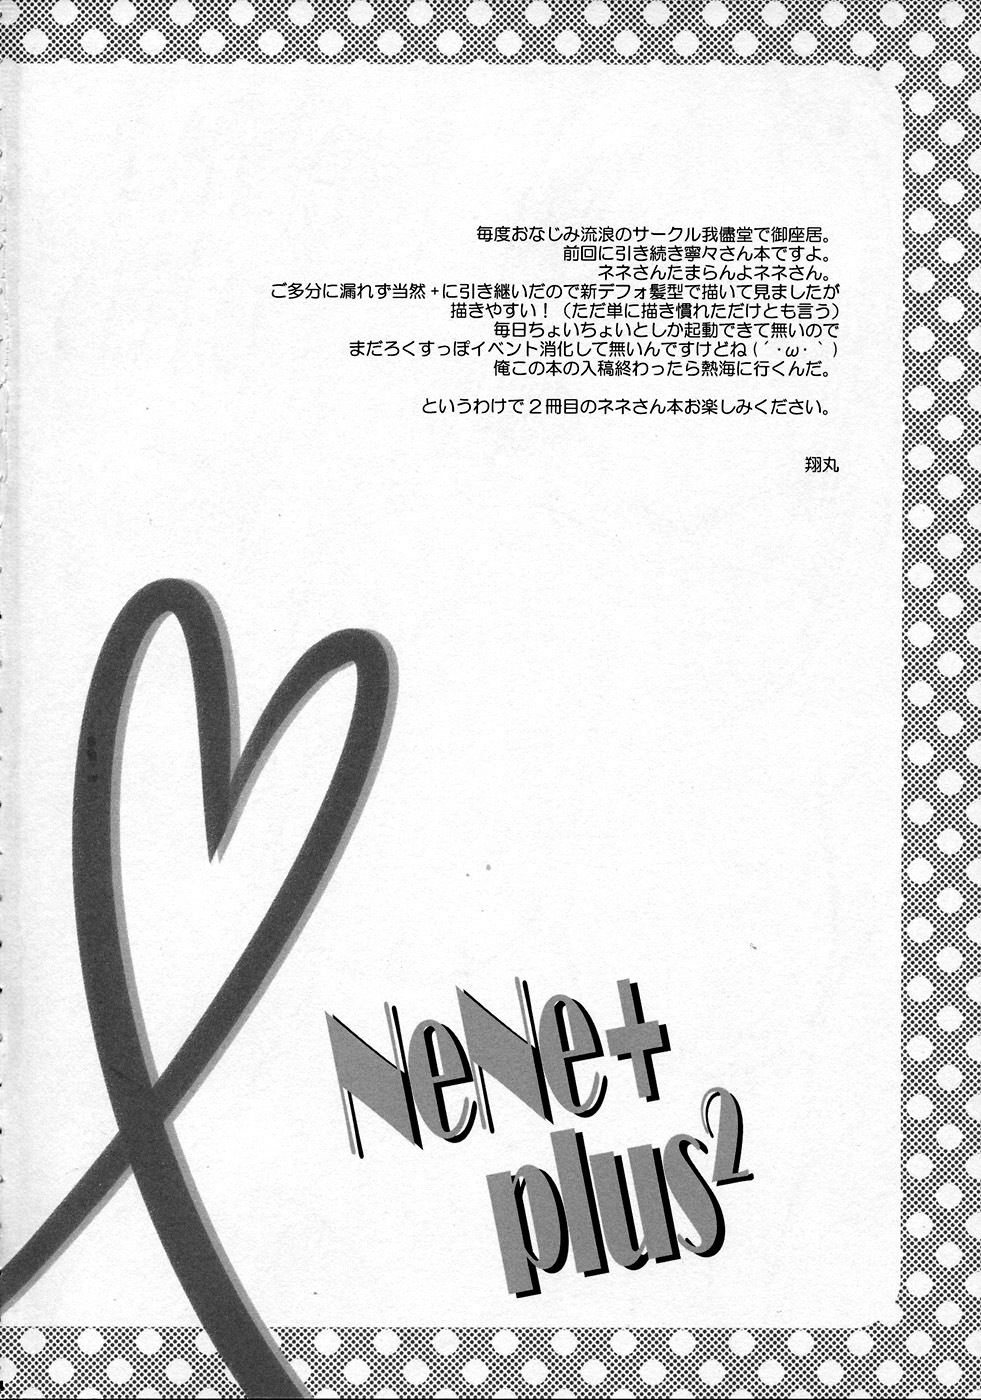 毎度おなじみ流浪のサークル我儘堂で御座居。
前回に引き続き寧々さん本ですよ。
ネネさんたまらんよネネさん。
ご多分に漏れず当然＋に引き継いだので新デフォ髪型で描いて見ましたが
描きやすい！（ただ単に描き慣れただけとも言う）
毎日ちょいちょいとしか起動できて無いので
まだろくすっぽイベント消化して無いんですけどね(´・ω・｀)
俺この本の入稿終わったら熱海に行くんだ。
というわけで２冊目のネネさん本お楽しみください。
翔丸
NeNe+
plus2